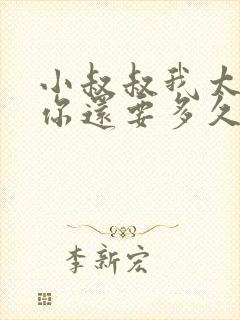 小叔叔我太
你還要多久
李新宏